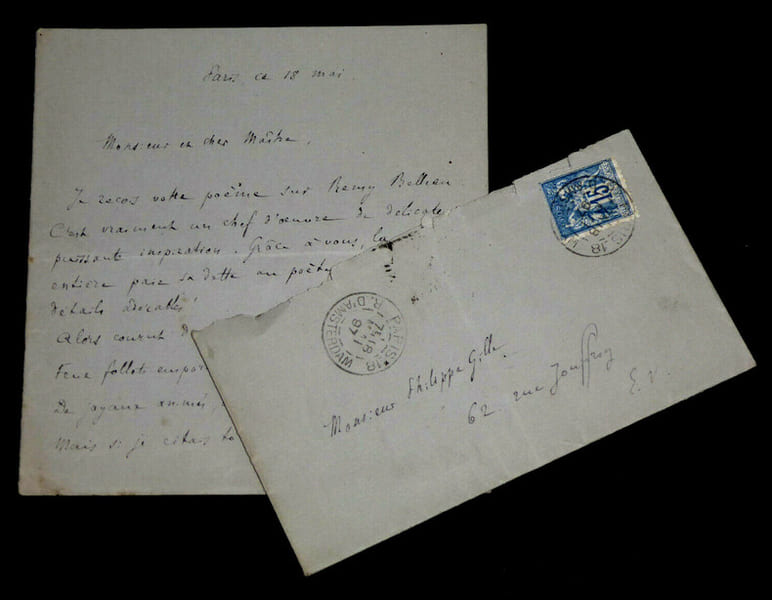 Paris, ce 18 mai.
Monsieur et cher Maître,
Je reçois votre poème sur Remy Belleau.
C'est vraiment un chef d'œuvre de délicate
puissante inspiration. Grâce à vous, la
entière paie sa dette au poète
détails adorables!
Alors courent
Feux follets
De joyaux animés,
Mais si je citais
15
PARIS-18
R. D'AMSTERDAM
97
Monsieur Philippe Gille.
62 rue Jouffroy
E. V.